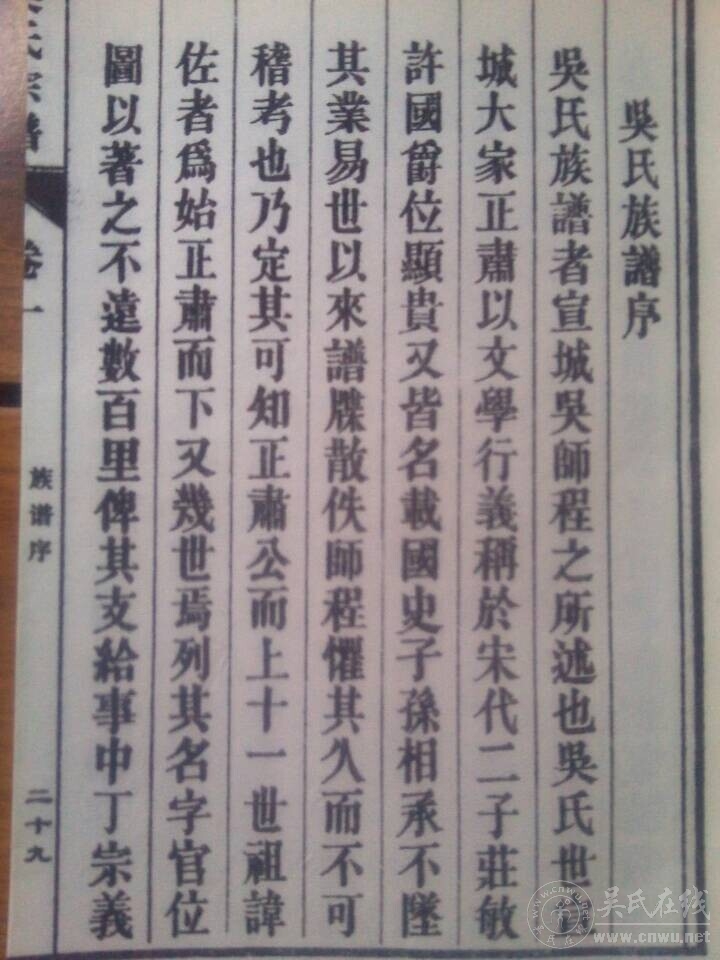 吳氏族譜序
吳氏族譜者宣城吳師程之所述也吳氏世
城大家正肅以文學行義稱於宋代二子莊敏
許國爵位顯貴又皆名載國史子孫相承不墜
其業易世以來譜牒散佚師程懼其久而不可
稽考也乃定其可知正肅公而上十一世祖諱
佐者爲始正肅而下又幾世焉列其名字官位
圖以著之不遠數百里俾其支給事中丁宗義
氏宗譜
卷一
族谱序
二十九
吴氏在线
www.cnwu.net